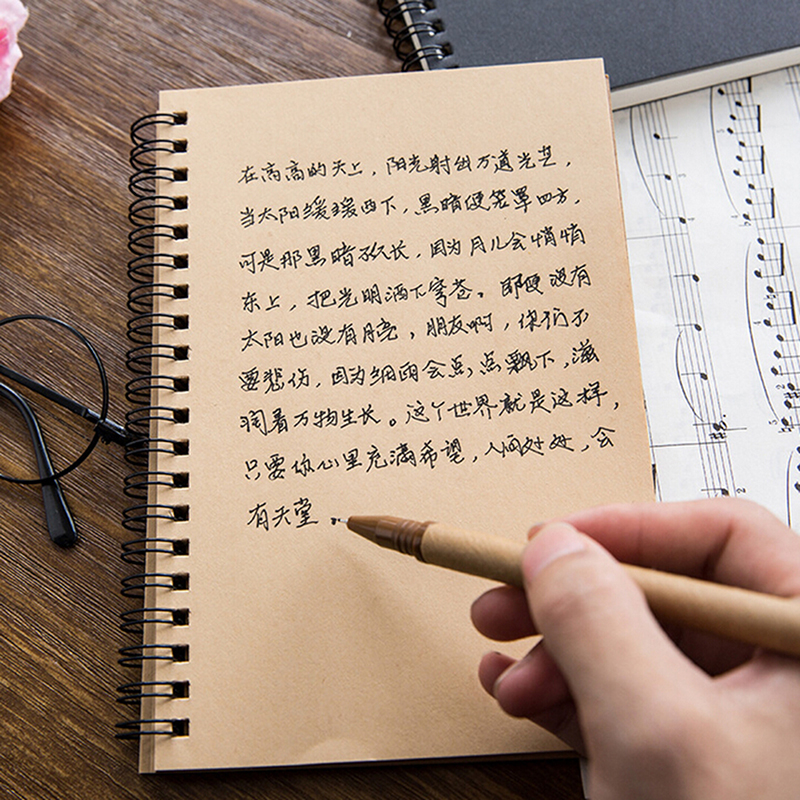 在高高的天上，阳光射出万道光芒，
当太阳缓缓西下，黑暗便笼罩四方，
可是那黑暗不久长，因为月儿会悄悄
东上，把光明洒下穹苍。即便没有
太阳也没有月亮，朋友啊，你们不
要悲伤，因为细雨会点点飘下，滋
润着万物生长。这个世界就是这样，
只要你心里充满希望，人间处处，会
有天堂。